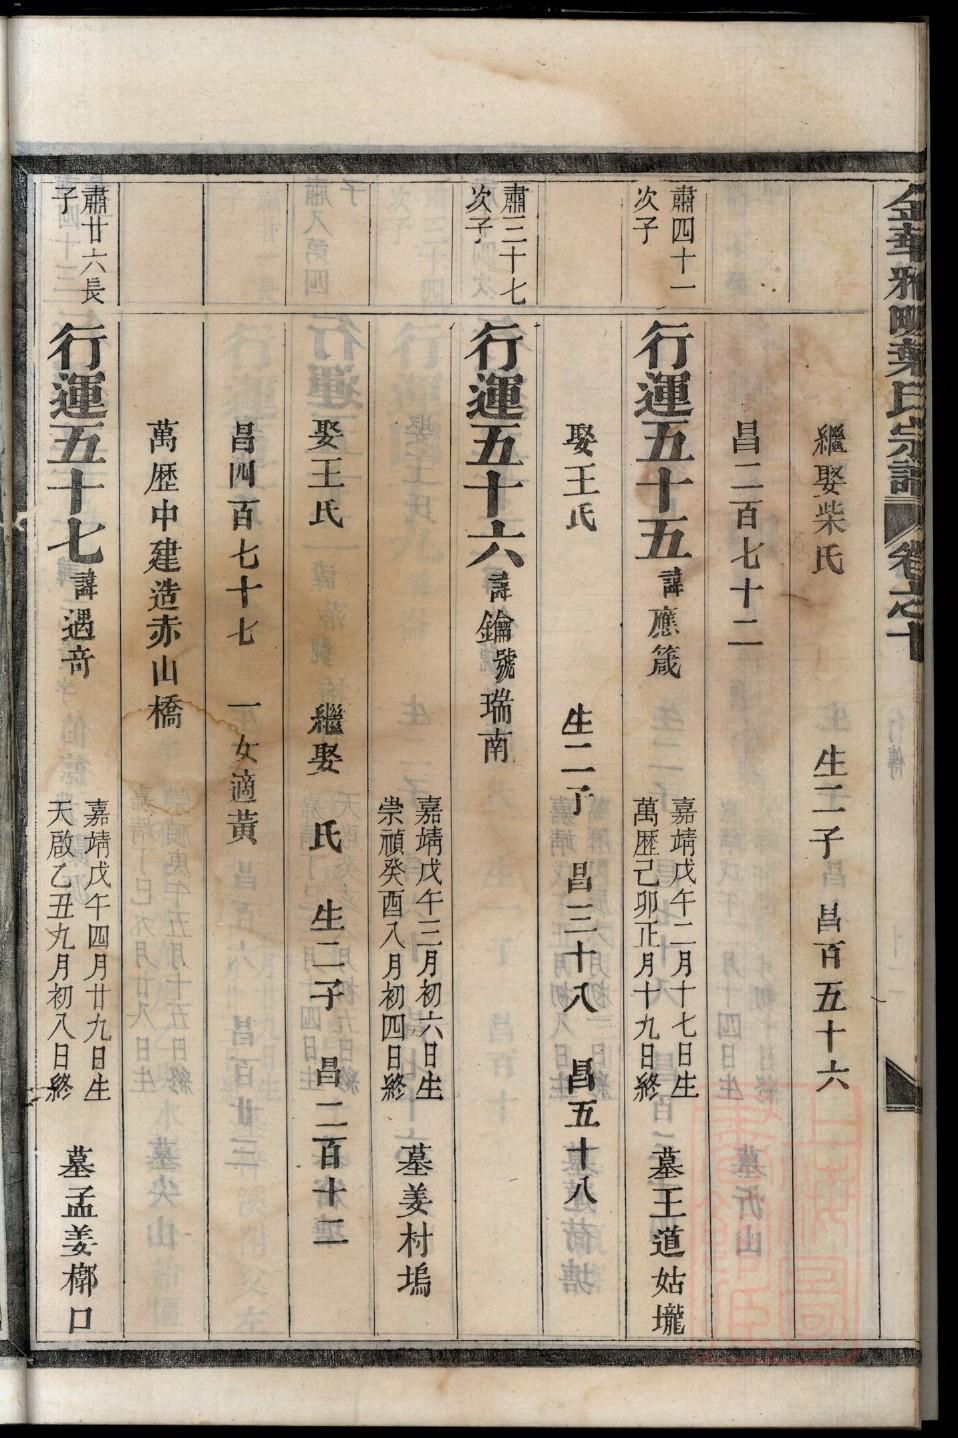 金華雅畈葉氏宗譜 卷之十
繼娶柴氏 生二子 昌百五十六
昌二百七十二
肅四十一
次子
行運五十五 諱應箴
嘉靖戊午二月十七日生
萬歷己卯正月十九日終
墓王道姑壠
娶王氏 生二子 昌三十八 昌五十八
肅三十七
次子
行運五十六 諱鑰號瑞南
嘉靖戊午三月初六日生
崇禎癸酉八月初四日終
墓姜村塢
娶王氏 繼娶 氏 生二子 昌二百十二
昌四百七十七 一女適黃
萬歷中建造赤山橋
肅廿六長
子
行運五十七 諱遇奇
嘉靖戊午四月廿九日生
天啟乙丑九月初八日終
墓孟姜槨口